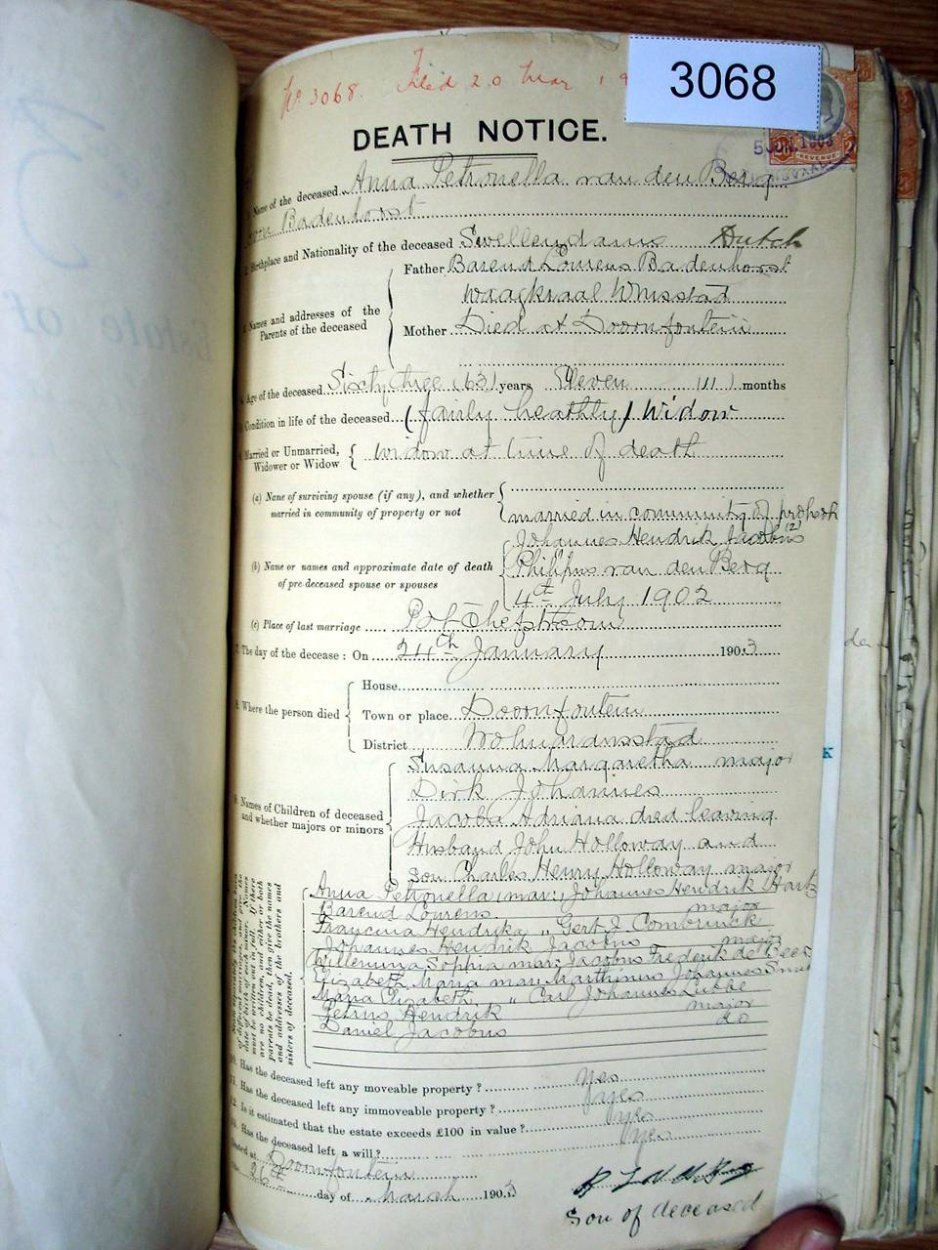 No 3068. Filed 20 Mar 19
3068
DEATH NOTICE.
5 JUN. 1903
REVENUE
Name of the deceased Anna Petronella van den Berg
born Badenhorst
2. Birthplace and Nationality of the deceased Swellendams Dutch
Names and addresses of the Parents of the deceased
Father Barend Lourens Badenhorst
Waagkraal Wmsstad
Mother Died at Doornfontein
Age of the deceased Sixty three (63) years Eleven (11) months
Condition in life of the deceased (fairly heathly) Widow
Married or Unmarried, Widower or Widow { Widow at time of death
(a) Name of surviving spouse (if any), and whether
married in community of property or not
married in community of
(b) Name or names and approximate date of death
of pre-deceased spouse or spouses
Johannes Hendrik Jacobus (2)
Philipus van den Berg
4th July 1902
(c) Place of last marriage Potchefstroom
The day of the decease: On 24th January 1903
Where the person died
House
Town or place Doornfontein
District Wolmaransstad
9. Names of Children of deceased
and whether majors or minors
Susanna Margaretha major
Dirk Johannes
Jacoba Adriana died leaving
Husband John Holloway and
son Charles Henry Holloway major
of different marriages, and give the
date of birth of each minor. Names
must be written out in full. If there
are no children, and either or both
parents be dead, then give the names
and addresses of the brothers and
sisters of deceased.
Anna Petronella mar: Johannes Hendrik
Barend Lourens major
Francina Hendrika " Gert J Combrinck
Johannes Hendrik Jacobus major
Willemina Sophia mar: Jacobus Frederik de Beer
Elizabeth Maria mar: Marthinus Johannes
Maria Elizabeth " Carl Johannes Lubbe
Petrus Hendrik major
Daniel Jacobus do
10. Has the deceased left any moveable property? yes
11. Has the deceased left any immoveable property? yes
12. Is it estimated that the estate exceeds £100 in value? yes
13. Has the deceased left a will? yes
Dated at Doornfontein
26th day of March 1903
Son of deceased
Estate of